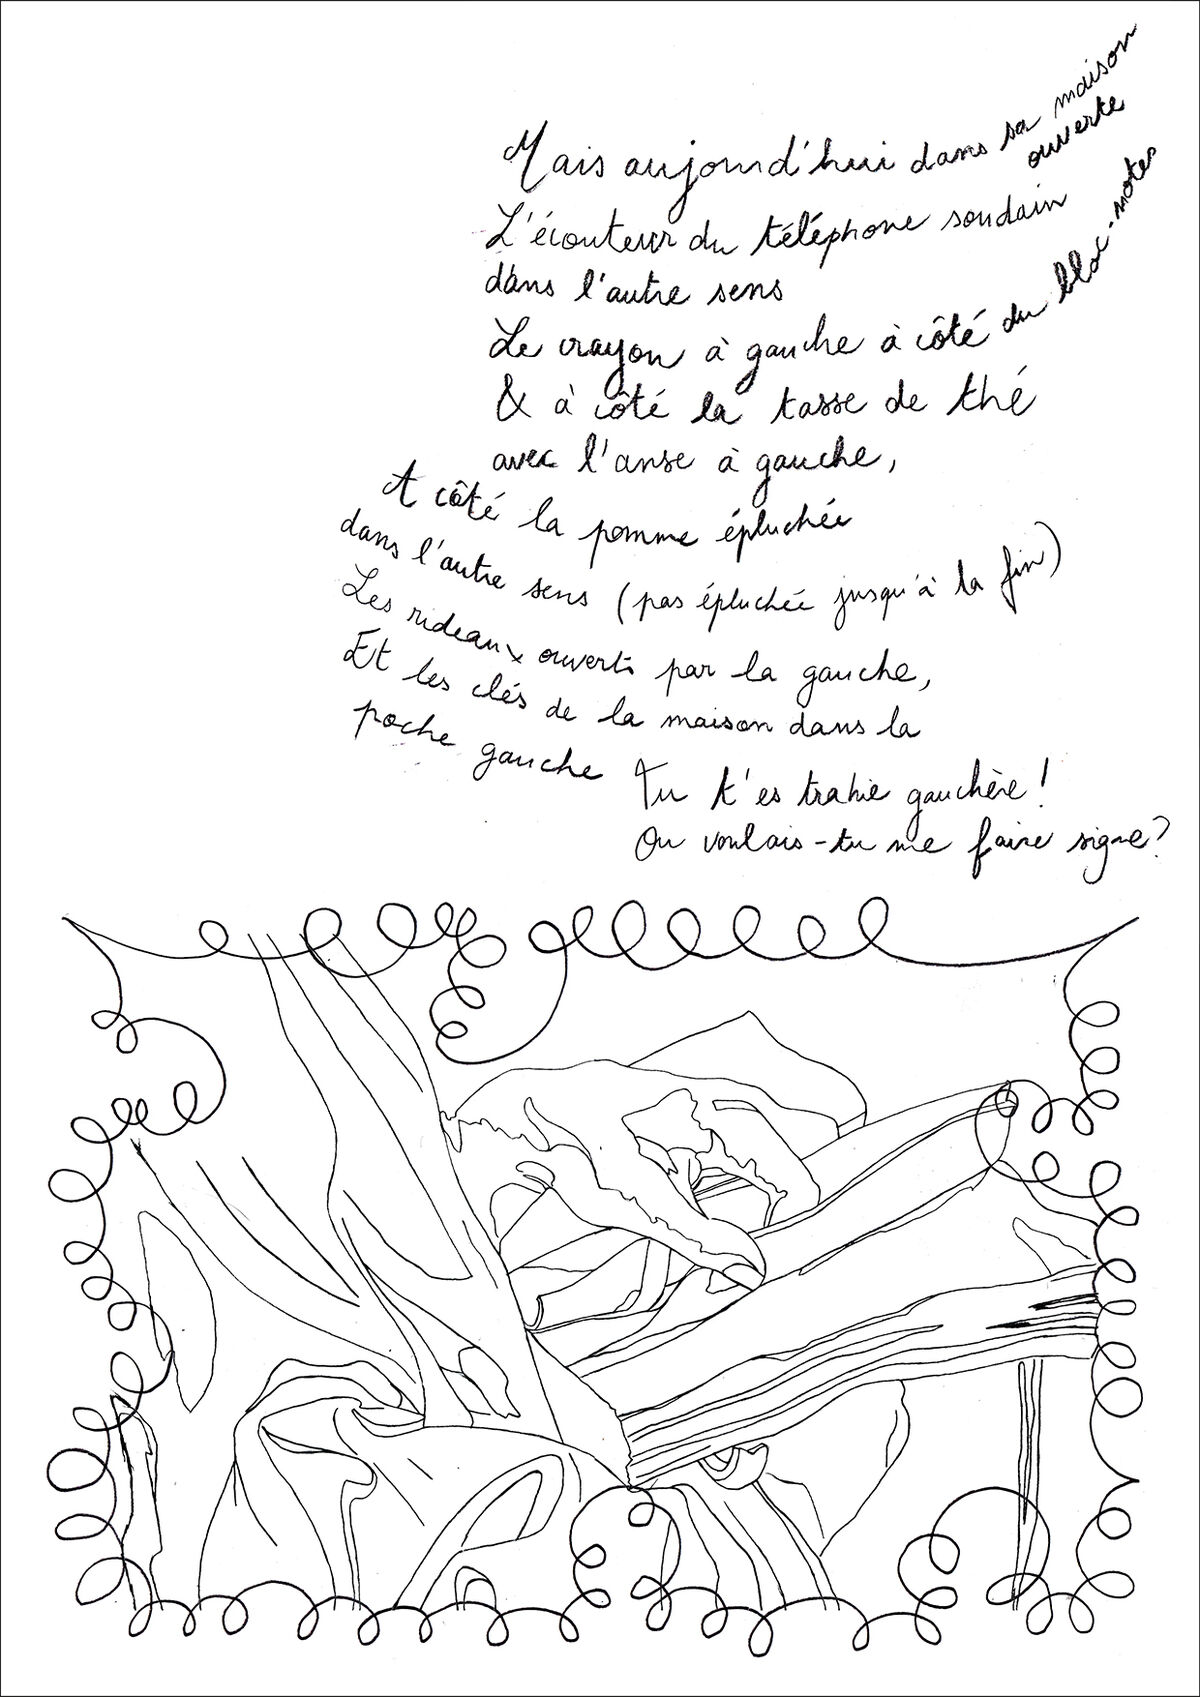 Mais aujourd'hui dans sa maison
ouverte
L'écouteur du téléphone soudain
dans l'autre sens
Le crayon à gauche à côté du bloc-notes
& à côté la tasse de thé
avec l'anse à gauche,
A côté la pomme épluchée
dans l'autre sens (pas épluchée jusqu'à la fin)
Les rideaux ouverts par la gauche,
Et les clés de la maison dans la
poche gauche
Tu t'es trahie gauchère !
Ou voulais-tu me faire signe ?